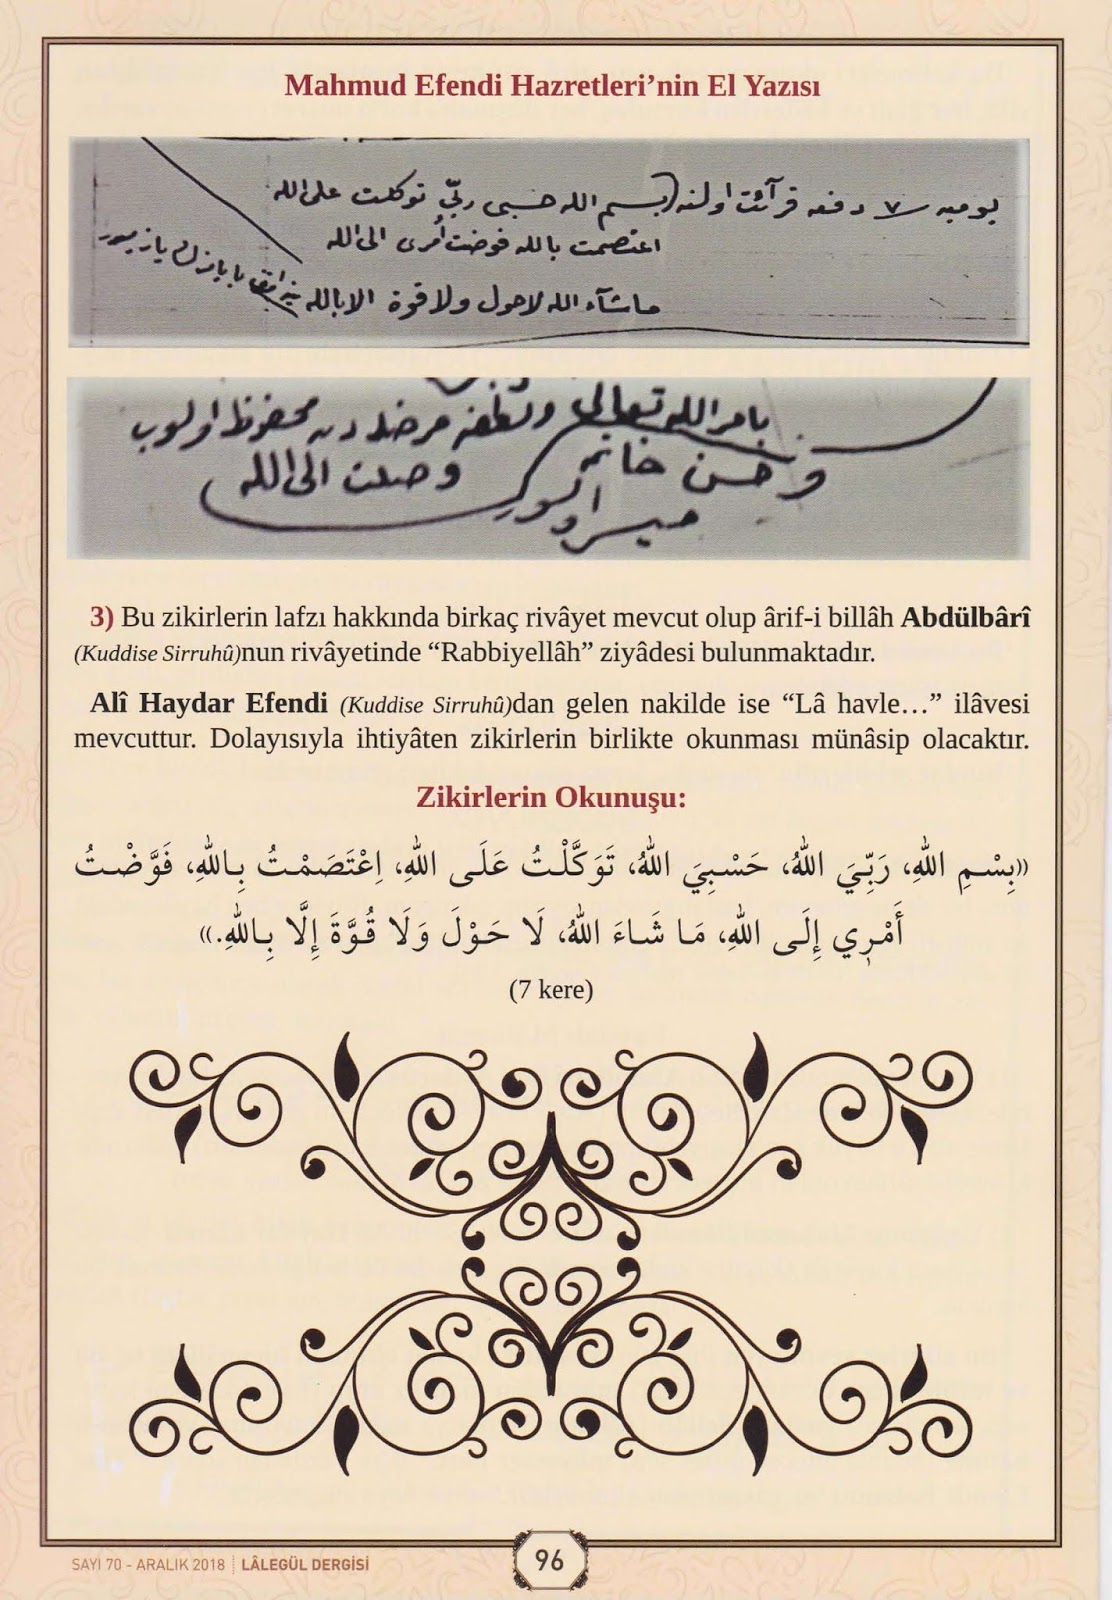 Mahmud Efendi Hazretleri’nin El Yazısı
يوميه ٧ دفعه قرآئت اولنه (بسم الله حسبى ربّي توكلت على الله
اعتصمت بالله فوضت أمرى الى الله
ماشآء الله لاحول ولا قوة الا بالله
بامر الله تعالى ولطفه مرضدن محفوظ اولوب
و حسن خاتمه وصلت الى الله
ميسر اولور
3) Bu zikirlerin lafzı hakkında birkaç rivâyet mevcut olup ârif-i billâh Abdülbârî
(Kuddise Sirruhû)nun rivâyetinde “Rabbiyellâh” ziyâdesi bulunmaktadır.
Alî Haydar Efendi (Kuddise Sirruhû)dan gelen nakilde ise “Lâ havle…” ilâvesi
mevcuttur. Dolayısıyla ihtiyâten zikirlerin birlikte okunması münâsip olacaktır.
Zikirlerin Okunuşu:
«بِسْمِ اللهِ، رَبِّيَ اللهُ، حَسْبِيَ اللهُ، تَوَكَّلْتُ عَلَى اللهِ، اِعْتَصَمْتُ بِاللهِ، فَوَّضْتُ
أَمْرِي إِلَى اللهِ، مَا شَاءَ اللهُ، لَا حَوْلَ وَلَا قُوَّةَ إِلَّا بِاللهِ.»
(7 kere)
SAYI 70 - ARALIK 2018 | LÂLEGÜL DERGİSİ
96